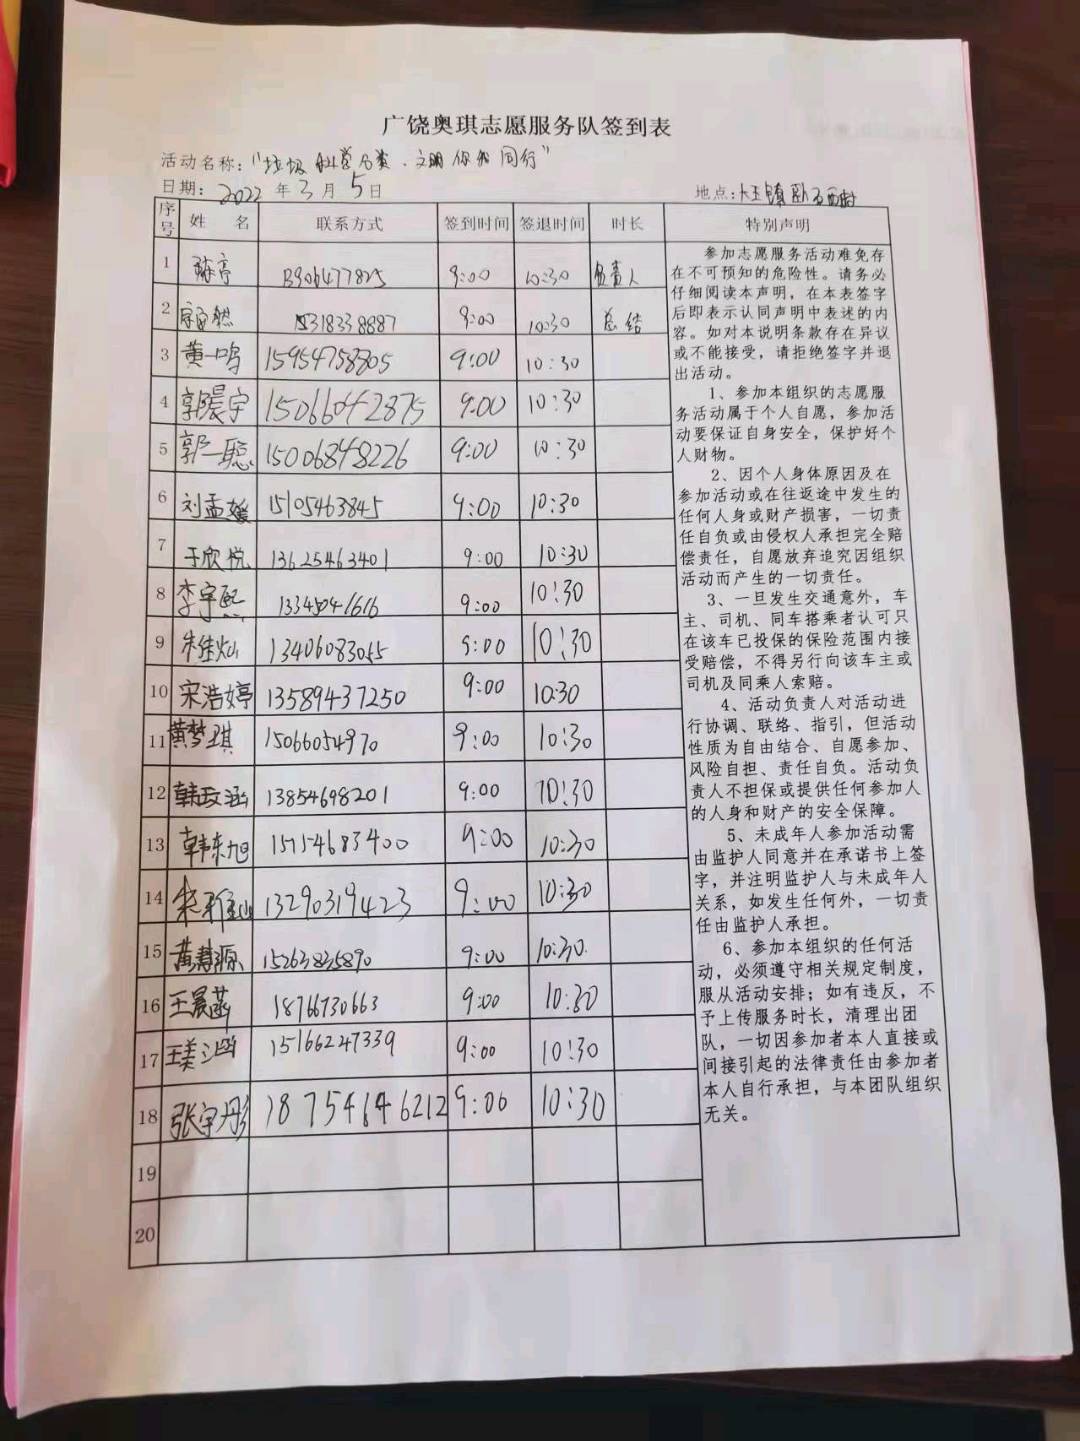 广饶奥琪志愿服务队签到表
活动名称："垃圾科学分类．文明你我同行"
日期：2022年3月5日 地点：大王镇
序号 姓 名 联系方式 签到时间 签退时间 时长 特别声明
1 陈亭 13906477825 9:00 10:30 负责人
2 15318338887 9:00 10:30 总结
3 黄一鸣 15954758805 9:00 10:30
4 郭晨宇 15066042875 9:00 10:30
5 郭一聪 15006848226 9:00 10:30
6 刘孟媛 15105463845 9:00 10:30
7 于欣悦 13625463401 9:00 10:30
8 李宇熙 9:00 10:30
9 13406083055 9:00 10:30
10 宋浩婷 13589437250 9:00 10:30
11 黄梦琪 15066054970 9:00 10:30
12 韩政涵 13854698201 9:00 10:30
13 韩东旭 15154683400 9:00 10:30
14 13290319423 9:00 10:30
15 黄慧源 15263835890 9:00 10:30
16 王晨菡 18766730663 9:00 10:30
17 15166247339 9:00 10:30
18 张宇彤 18754646212 9:00 10:30
19
20
参加志愿服务活动难免存
在不可预知的危险性。请务必
仔细阅读本声明，在本表签字
后即表示认同声明中表述的内
容。如对本说明条款存在异议
或不能接受，请拒绝签字并退
出活动。
1、参加本组织的志愿服
务活动属于个人自愿，参加活
动要保证自身安全，保护好个
人财物。
2、因个人身体原因及在
参加活动或在往返途中发生的
任何人身或财产损害，一切责
任自负或由侵权人承担完全赔
偿责任，自愿放弃追究因组织
活动而产生的一切责任。
3、一旦发生交通意外，车
主、司机、同车搭乘者认可只
在该车已投保的保险范围内接
受赔偿，不得另行向该车主或
司机及同乘人索赔。
4、活动负责人对活动进
行协调、联络、指引，但活动
性质为自由结合、自愿参加、
风险自担、责任自负。活动负
责人不担保或提供任何参加人
的人身和财产的安全保障。
5、未成年人参加活动需
由监护人同意并在承诺书上签
字，并注明监护人与未成年人
关系，如发生任何外，一切责
任由监护人承担。
6、参加本组织的任何活
动，必须遵守相关规定制度，
服从活动安排；如有违反，不
予上传服务时长，清理出团
队，一切因参加者本人直接或
间接引起的法律责任由参加者
本人自行承担，与本团队组织
无关。